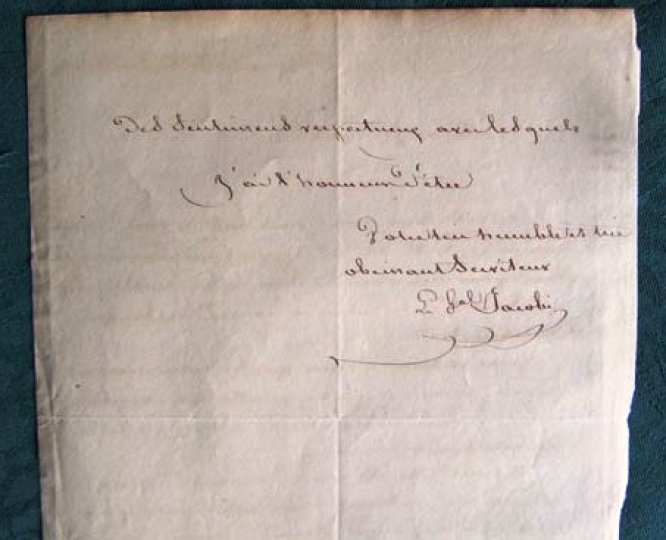 Des sentimens respectueux avec lesquels
J'ai l'honneur d'être
Votre très humble et très
obeissant Serviteur
Le Gal Jacobi